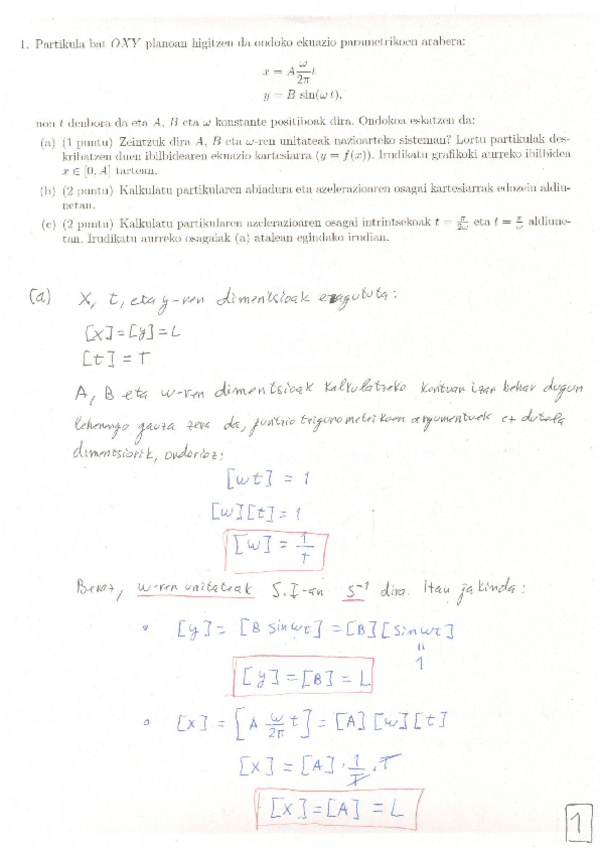 1. Partikula bat OXY planoan higitzen da ondoko ekuazio parametrikoen arabera:
x = A ω/2π t
y = B sin(ω t),
non t denbora da eta A, B eta ω konstante positiboak dira. Ondokoa eskatzen da:
(a) (1 puntu) Zeintzuk dira A, B eta ω-ren unitateak nazioarteko sisteman? Lortu partikulak des-
kribatzen duen ibilbidearen ekuazio kartesiarra (y = f(x)). Irudikatu grafikoki aurreko ibilbidea
x ∈ [0, A] tartean.
(b) (2 puntu) Kalkulatu partikularen abiadura eta azelerazioaren osagai kartesiarrak edozein aldiu-
netan.
(c) (2 puntu) Kalkulatu partikularen azelerazioaren osagai intrintsekoak t = π/2ω eta t = π/ω aldiune-
tan. Irudikatu aurreko osagaiak (a) atalean egindako irudian.
(a) X, t, eta y-ren dimentsioak ezagututa:
[x] = [y] = L
[t] = T
A, B eta w-ren dimentsioak kalkulatzeko kontuan izan behar dugun
lehenengo gauza zera da, funtzio trigonometrikoen argumentuek ez dutela
dimentsiorik, ondorioz:
[wt] = 1
[w][t] = 1
[w] = 1/T
Beraz, w-ren unitateak S.I-an s⁻¹ dira. Hau jakinda:
• [y] = [B sin wt] = [B][sin wt]
"
1
[y] = [B] = L
• [x] = [A w/2π t] = [A][w][t]
[x] = [A] · 1/T · T
[x] = [A] = L
1